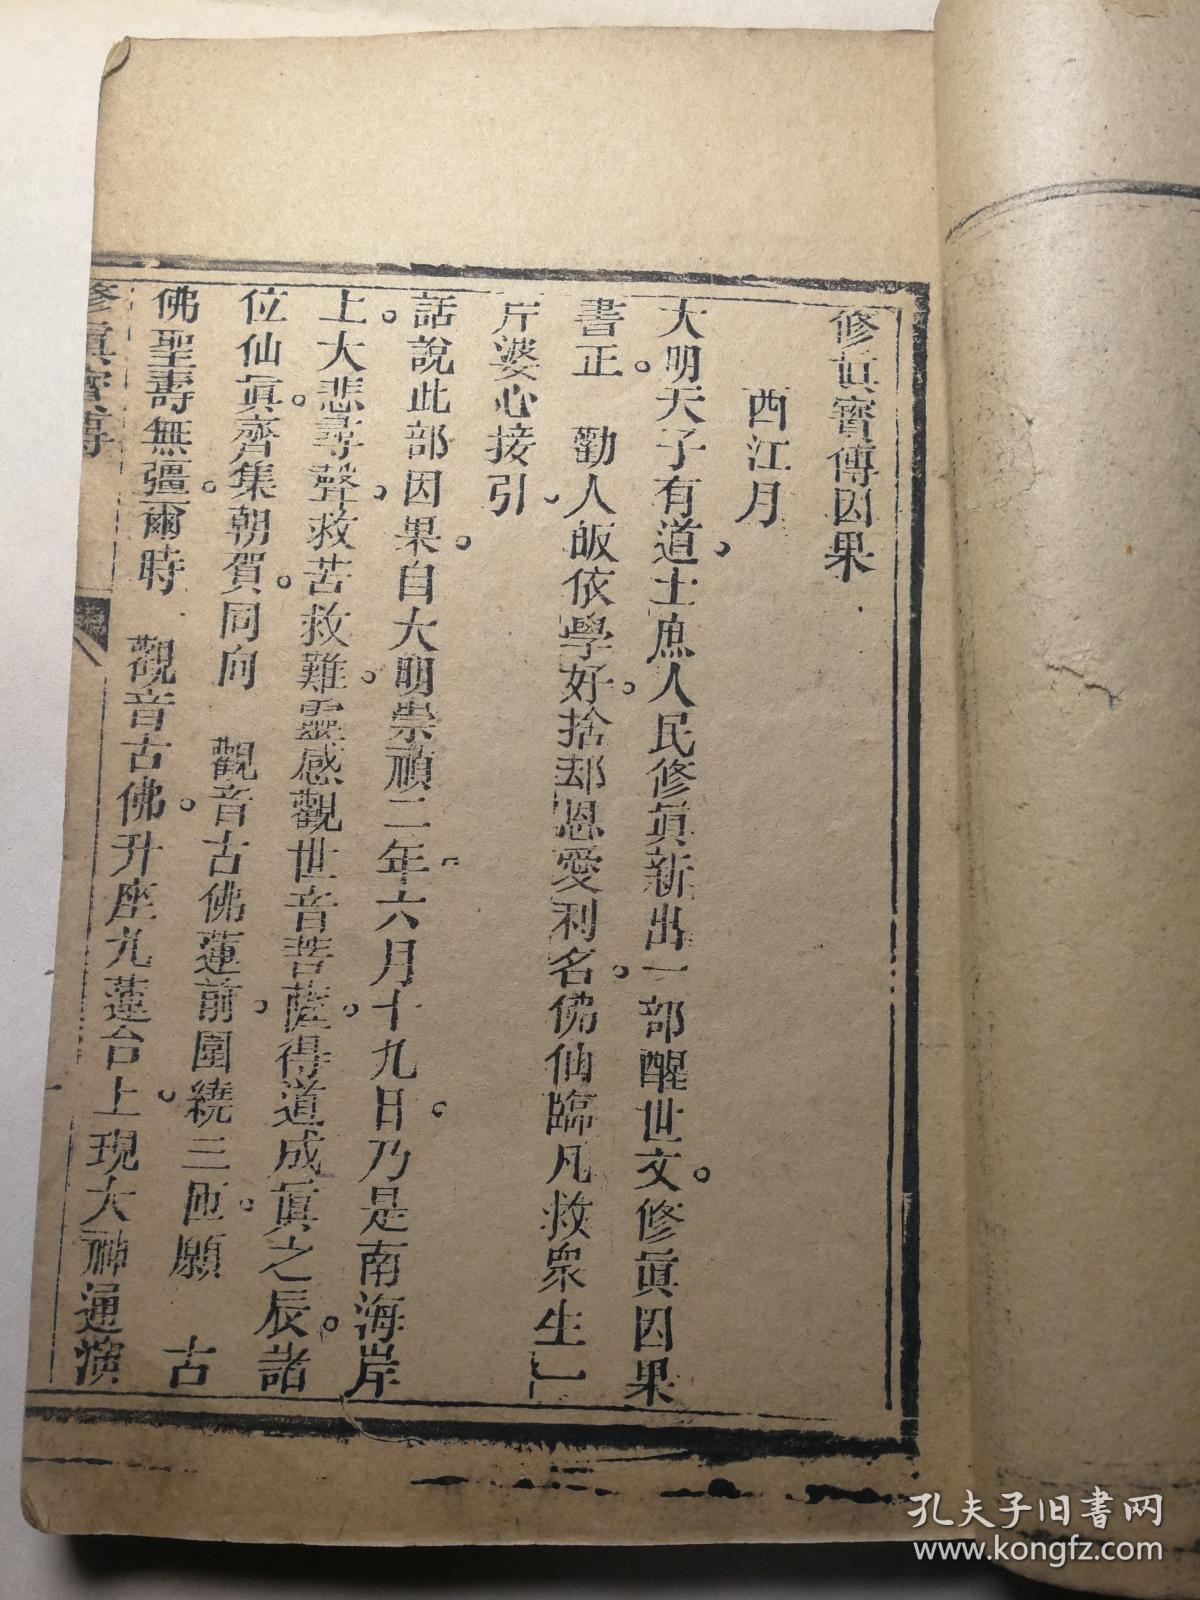 修眞寳傳因果
西江月
大明天子有道。士庶人民修眞新出一部醒世文。修眞因果
書正。 勸人皈依學好。捨却恩愛利名。佛仙臨凡救衆生一
片婆心接引
話說此部因果。自大明崇禎二年六月十九日。乃是南海岸
上。大悲尋聲。救苦救難。靈感觀世音菩薩。得道成眞之辰。諸
位仙眞。齊集朝賀。同向 觀音古佛蓮前。圍繞三匝。願 古
佛聖壽無疆。爾時 觀音古佛。升座九蓮台上。現大神通演
修眞寳傳
一
孔夫子旧书网
www.kongfz.com